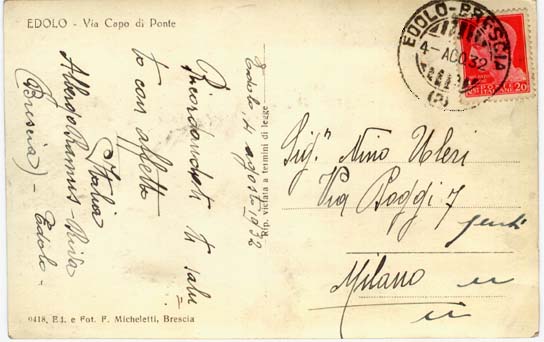 EDOLO - Via Capo di Ponte
EDOLO-BRESCIA
4-AGO.32
(2)
20
Edolo, 4 agosto 1932
Ricordandoti ti salu
to con affetto
Italia
Albergo
Edolo -
(Brescia) -
Rip. vietata a termini di legge
Sig.ʳ Nino Uleri
Via Poggi 7
Milano
9418. Ed. e Fot. F. Micheletti, Brescia